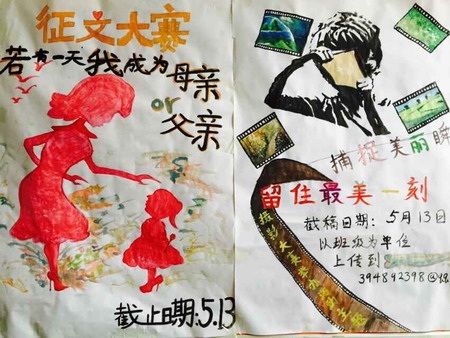 征文大赛
若有一天我成为母亲
or
父亲
截止日期:5.13
捕捉美丽瞬
留住最美一刻
截稿日期：5月13日
以班级为单位
上传到
394842398@
摄影大赛